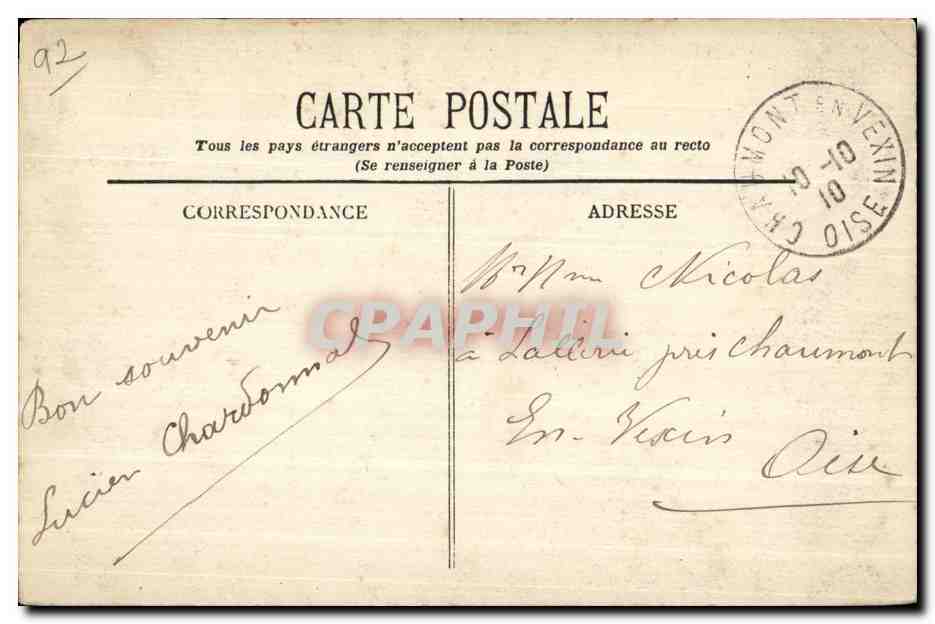 92
CARTE POSTALE
Tous les pays étrangers n'acceptent pas la correspondance au recto
(Se renseigner à la Poste)
CHAUMONT EN VEXIN
10-10
10
OISE
CORRESPONDANCE
Bon souvenir
Lucien Chardonnal
ADRESSE
Nicolas
à Laillerie près Chaumont
En-Vexin
Oise
CPAPHIL